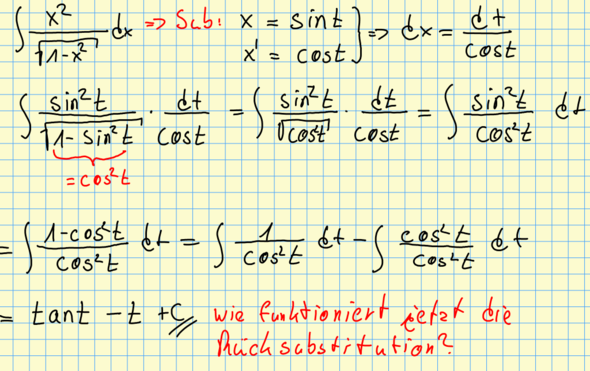 ∫ x²/√(1-x²) dx => Sub: x = sint } => dx = dt/cost
x' = cost
∫ sin²t/√(1-sin²t) · dt/cost = ∫ sin²t/√(cos²t) · dt/cost = ∫ sin²t/cos²t dt
= cos²t
= ∫ (1-cos²t)/cos²t dt = ∫ 1/cos²t dt - ∫ cos²t/cos²t dt
= tant - t + C, wie funktioniert jetzt die
Rücksubstitution?